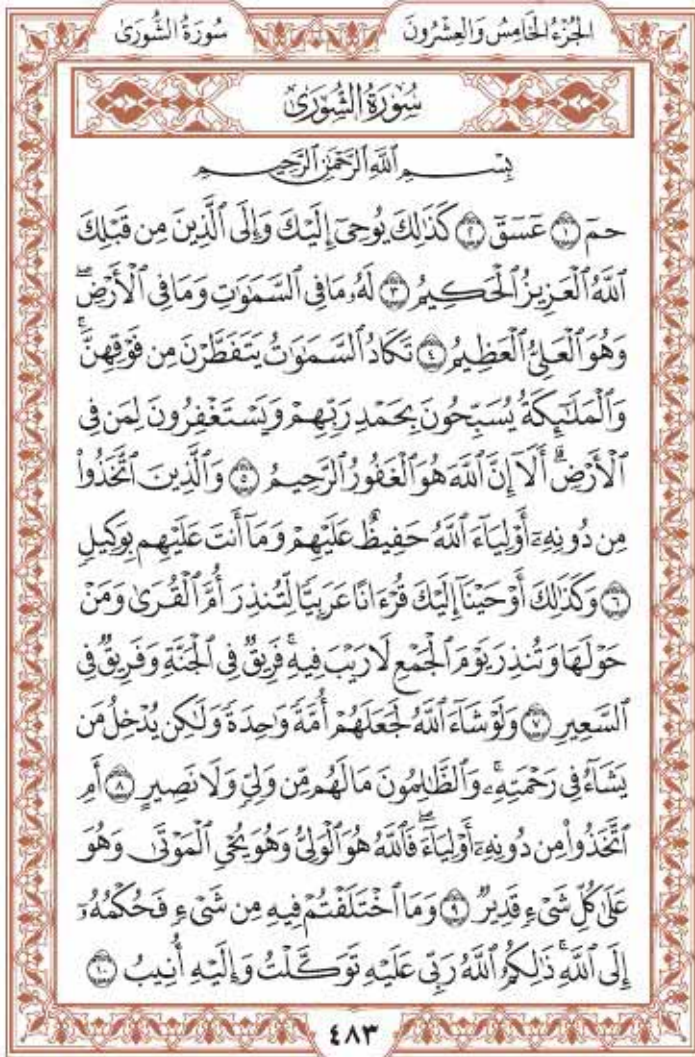 الجُزْءُ الخَامِسُ وَالعِشْرُونَ
سُورَةُ الشُّورَىٰ
سُورَةُ الشُّورَىٰ
بِسْمِ ٱللَّهِ ٱلرَّحْمَٰنِ ٱلرَّحِيمِ
حمٓ ١ عٓسٓقٓ ٢ كَذَٰلِكَ يُوحِىٓ إِلَيْكَ وَإِلَى ٱلَّذِينَ مِن قَبْلِكَ
ٱللَّهُ ٱلْعَزِيزُ ٱلْحَكِيمُ ٣ لَهُۥ مَا فِى ٱلسَّمَٰوَٰتِ وَمَا فِى ٱلْأَرْضِ ۖ
وَهُوَ ٱلْعَلِىُّ ٱلْعَظِيمُ ٤ تَكَادُ ٱلسَّمَٰوَٰتُ يَتَفَطَّرْنَ مِن فَوْقِهِنَّ ۚ
وَٱلْمَلَٰٓئِكَةُ يُسَبِّحُونَ بِحَمْدِ رَبِّهِمْ وَيَسْتَغْفِرُونَ لِمَن فِى
ٱلْأَرْضِ ۗ أَلَآ إِنَّ ٱللَّهَ هُوَ ٱلْغَفُورُ ٱلرَّحِيمُ ٥ وَٱلَّذِينَ ٱتَّخَذُوا۟
مِن دُونِهِۦٓ أَوْلِيَآءَ ٱللَّهُ حَفِيظٌ عَلَيْهِمْ وَمَآ أَنتَ عَلَيْهِم بِوَكِيلٍ
٦ وَكَذَٰلِكَ أَوْحَيْنَآ إِلَيْكَ قُرْءَانًا عَرَبِيًّا لِّتُنذِرَ أُمَّ ٱلْقُرَىٰ وَمَنْ
حَوْلَهَا وَتُنذِرَ يَوْمَ ٱلْجَمْعِ لَا رَيْبَ فِيهِ ۚ فَرِيقٌ فِى ٱلْجَنَّةِ وَفَرِيقٌ فِى
ٱلسَّعِيرِ ٧ وَلَوْ شَآءَ ٱللَّهُ لَجَعَلَهُمْ أُمَّةً وَٰحِدَةً وَلَٰكِن يُدْخِلُ مَن
يَشَآءُ فِى رَحْمَتِهِۦ ۚ وَٱلظَّٰلِمُونَ مَا لَهُم مِّن وَلِىٍّ وَلَا نَصِيرٍ ٨ أَمِ
ٱتَّخَذُوا۟ مِن دُونِهِۦٓ أَوْلِيَآءَ ۖ فَٱللَّهُ هُوَ ٱلْوَلِىُّ وَهُوَ يُحْىِ ٱلْمَوْتَىٰ وَهُوَ
عَلَىٰ كُلِّ شَىْءٍ قَدِيرٌ ٩ وَمَا ٱخْتَلَفْتُمْ فِيهِ مِن شَىْءٍ فَحُكْمُهُۥٓ
إِلَى ٱللَّهِ ۚ ذَٰلِكُمُ ٱللَّهُ رَبِّى عَلَيْهِ تَوَكَّلْتُ وَإِلَيْهِ أُنِيبُ ١٠
٤٨٣